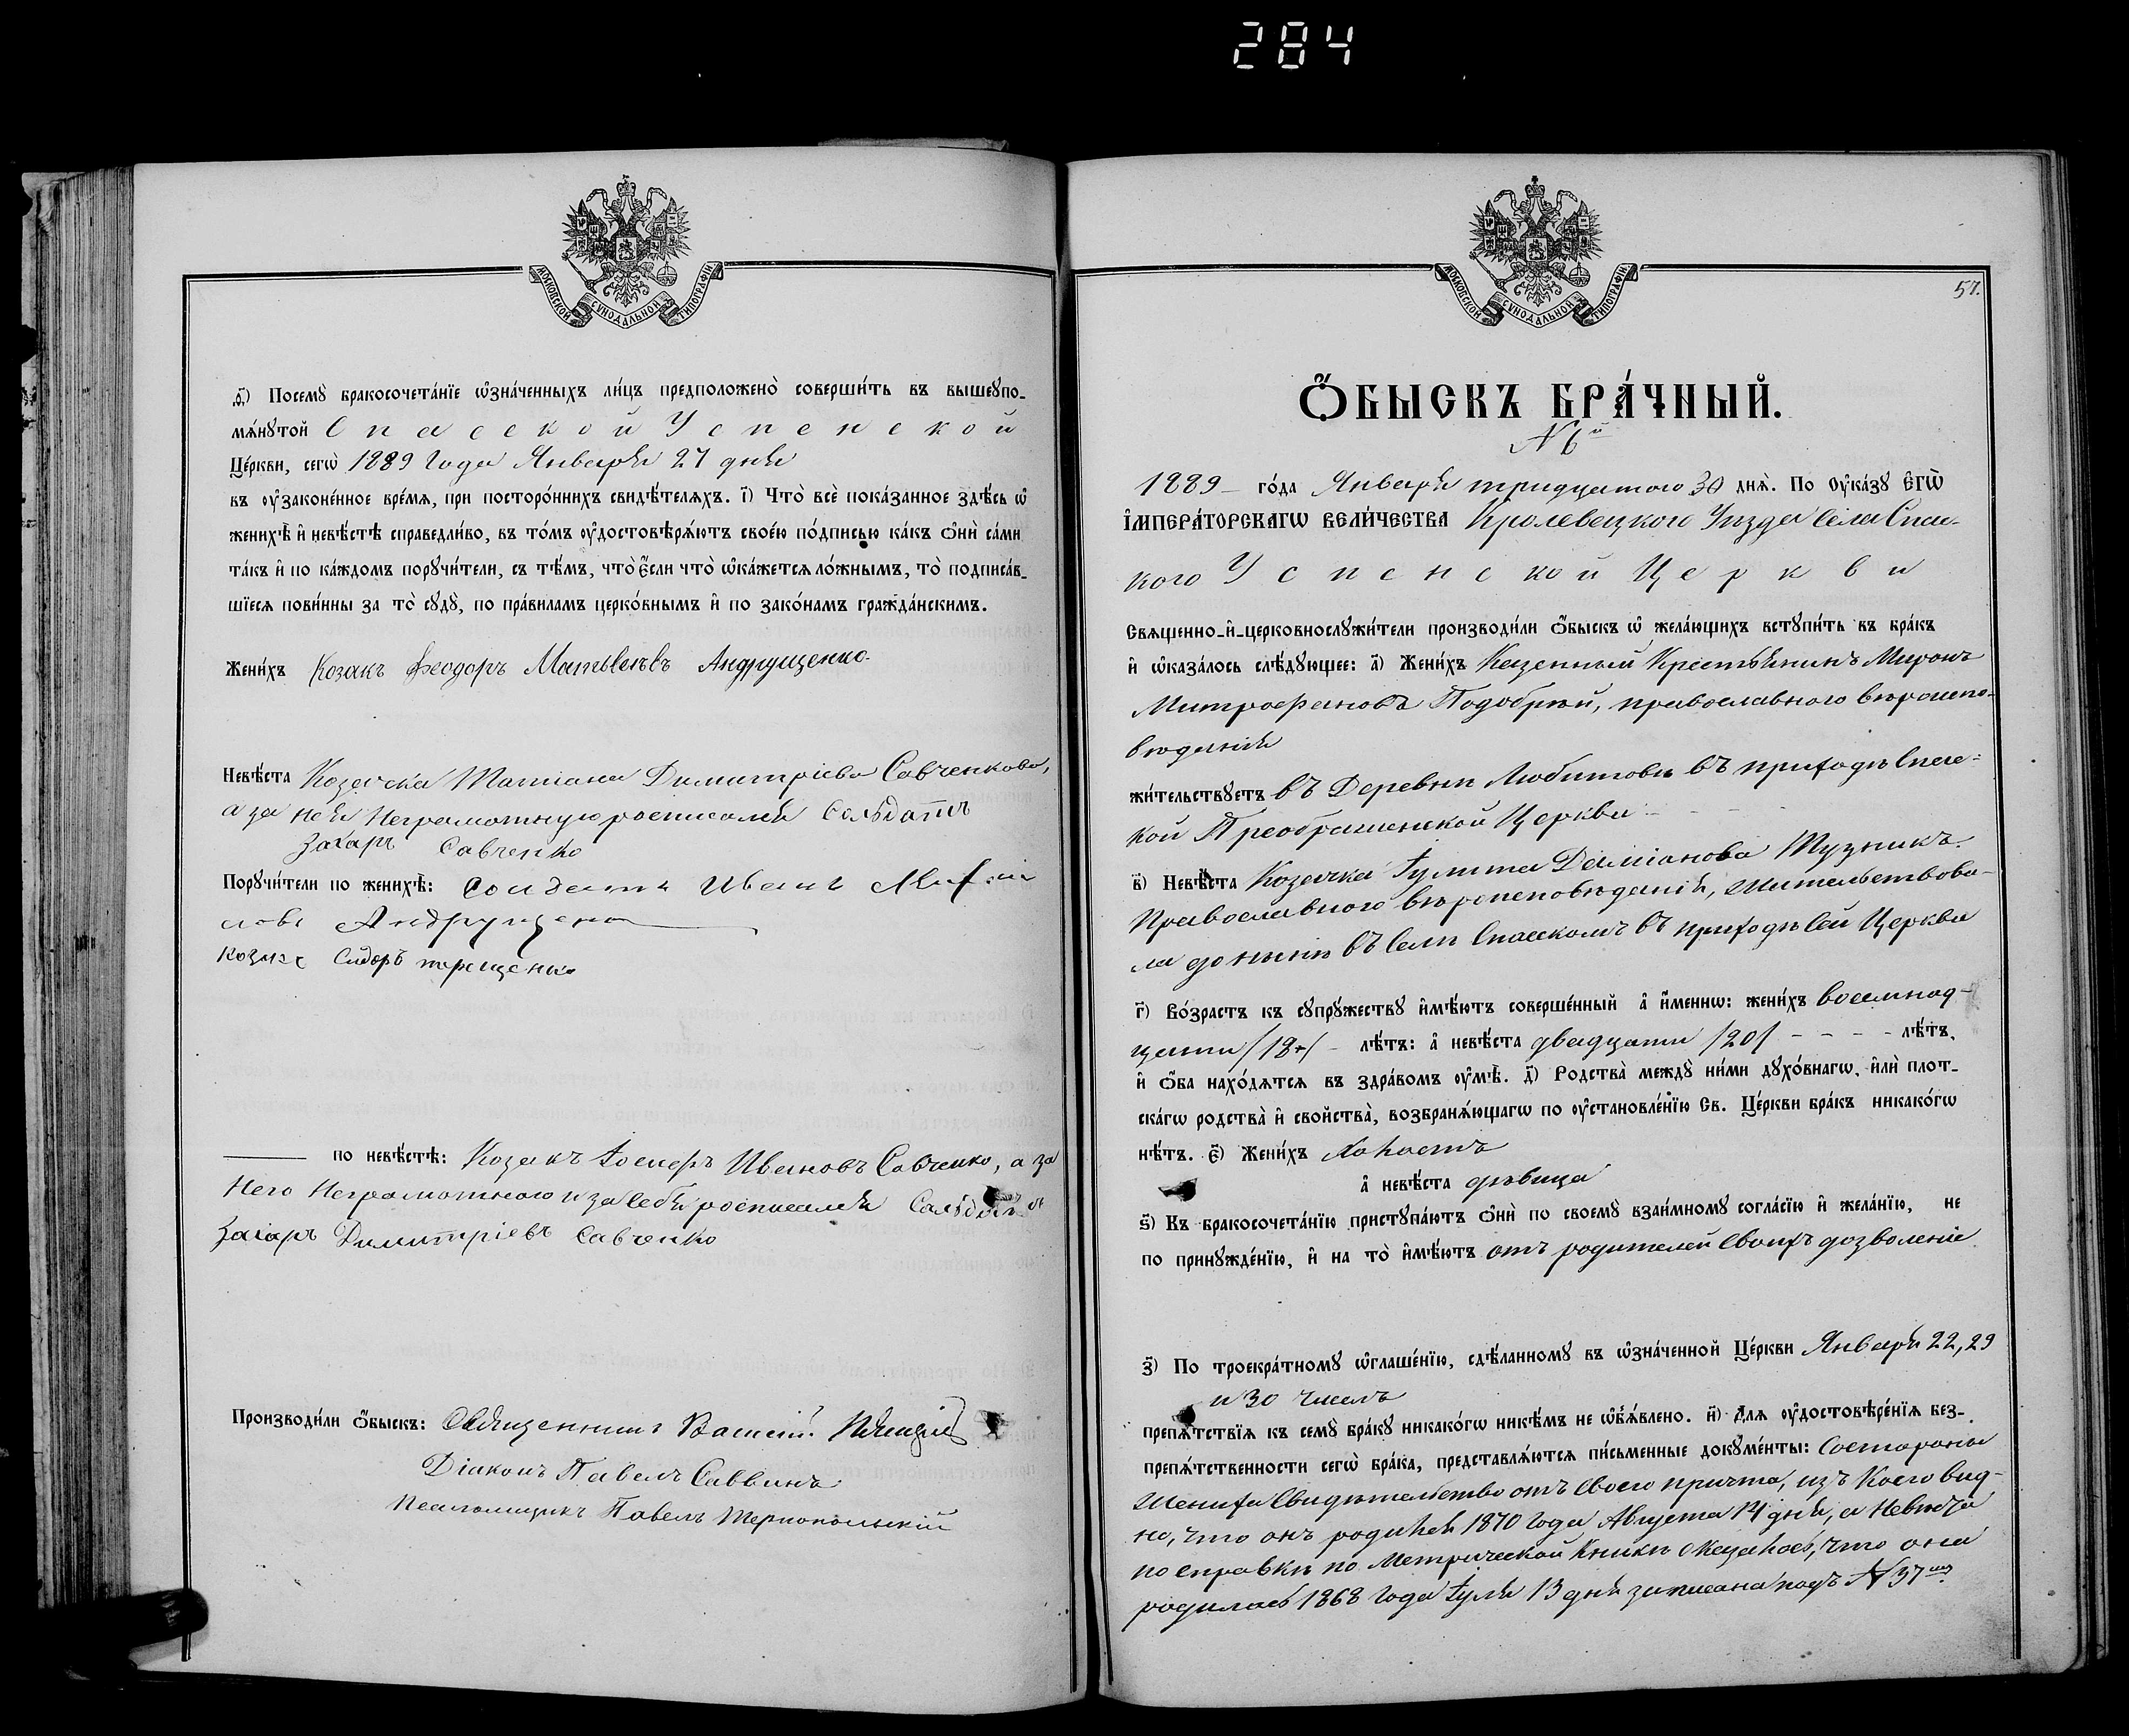 284
МОСКОВСКОЙ СУНОДАЛЬНОЙ ТИПОГРАФІИ
д҃і) Посемꙋ̀ бракосочета́нїе ѡ҆зна́ченныхъ ли́цъ предположено̀ соверши́ть въ вышеꙋпо-
мѧ́нꙋтой Спасской Успенской
Це́ркви, сегѡ̀ 1889 Года Января 27 дня
въ ᲂу҆законе́нное вре́мѧ, при посторо́ннихъ свидѣ́телѧхъ. і҃) Что̀ всѐ пока́занное здѣ́сь ѡ҆
женихѣ̀ и҆ невѣ́стѣ справедли́во, въ то́мъ ᲂу҆достовѣрѧ́ютъ свое́ю по́дписью ка́къ ѻ҆нѝ са́ми
та́къ и҆ по ка́ждомъ порꙋчи́тели, съ тѣ́мъ, что̀ є҆́сли что̀ ѡ҆ка́жетсѧ ло́жнымъ, то̀ подписа́в-
шїесѧ пови́нны за то̀ сꙋдꙋ̀, по пра́виламъ церко́внымъ и҆ по зако́намъ гражда́нскимъ.
Жени́хъ Козакъ Феодоръ Матвѣевъ Андрущенко.
Невѣ́ста Козачка Татіана Димитріева Савченкова,
а за нея Неграмотную росписался Солъдатъ
Захаръ Савченко
Порꙋчи́тели по женихѣ̀: Солдатъ Иванъ Михаи
ловъ Андрущенко
козакъ Сидоръ терещенко
по невѣ́стѣ: Козакъ Іосифъ Ивановъ Савченко, а за
Него Неграмотного и за себя росписался Солъдатъ
Захаръ Димитріевъ Савченко
Производи́ли ѻ҆́быскъ: Священникъ Василій
Діаконъ Павелъ Саввинъ
Псаломщикъ Павелъ Тернопольскій
МОСКОВСКОЙ СУНОДАЛЬНОЙ ТИПОГРАФІИ
57.
Ѻ҆́БЫСКЪ БРА́ЧНЫЙ.
N 6й
1889 – го́да Января тридцатого 30 днѧ̀. По Оу҆ка́зꙋ Є҆гѡ̀
И҆мпера́торскагѡ Вели́чества Кролевецкого Уѣзда Села Спас-
кого Успенской Церкви
Свѧщенно-и҆-церковнослꙋжи́тели производи́ли ѻ҆́быскъ ѡ҆ жела́ющихъ встꙋпи́ть въ бра́къ
и҆ ѡ҆каза́лось слѣ́дꙋющее: а҃) Жени́хъ Казенный Крестьянинъ Миронъ
Митрофановъ Подобрѣй, православного вѣроиспо-
вѣданія
жи́тельствꙋетъ въ Деревни Любитовѣ въ приходѣ Спас-
кой Преображенской Церкви
в҃) Невѣ́ста Козачка Іулита Даміанова Музникъ.
Православного вѣроисповѣданія, жительствова-
ла до нынѣ въ Селѣ Спасскомъ въ приходѣ Сей Церкви
г҃) Во́зрастъ къ сꙋпрꙋ́жествꙋ и҆мѣ́ютъ соверше́нный а҆ и҆́меннѡ: жени́хъ восемнад-
цати /18/ – лѣ́тъ: а҆ невѣ́ста двадцати /20/ – – – – лѣ́тъ,
и҆ ѻ҆́ба нахо́дѧтсѧ въ здра́вомъ ᲂу҆мѣ̀. д҃) Родства̀ междꙋ̀ ни́ми дꙋхо́внагѡ, и҆лѝ плот-
ска́гѡ родства̀ и҆ свойства̀, возбранѧ́ющагѡ по ᲂу҆становле́нїю Св. Це́ркви бра́къ никако́гѡ
нѣ́тъ. є҃) Жени́хъ Холостъ
а҆ невѣ́ста дѣвица
ѕ҃) Къ бракосочета́нїю пристꙋпа́ютъ ѻ҆нѝ по своемꙋ̀ взаи́мномꙋ согла́сїю и҆ жела́нїю, не
по принꙋжде́нїю, и҆ на то̀ и҆мѣ́ютъ отъ родителей своихъ дозволеніе
з҃) По троекра́тномꙋ ѡ҆глаше́нїю, сдѣ́ланномꙋ въ ѡ҆зна́ченной Це́ркви Января 22, 29
и 30 чиселъ
препѧ́тствїѧ къ семꙋ̀ бра́кꙋ никако́гѡ никѣ́мъ не ѡ҆б̾ѧ́влено. и҃) Для ᲂу҆достовѣре́нїѧ без-
препѧ́тственности сегѡ̀ бра́ка, представлѧ́ютсѧ пи́сьменные докꙋме́нты: Состороны
Жениха Свидѣтельство отъ своего причта, изъ Коего вид-
но, что онъ родился 1870 Года Августа 14 дня, а Невѣста
по справкѣ по Метрической Кникѣ оказалось, что она
родилась 1868 Года Іуля 13 дня записана подъ N 37